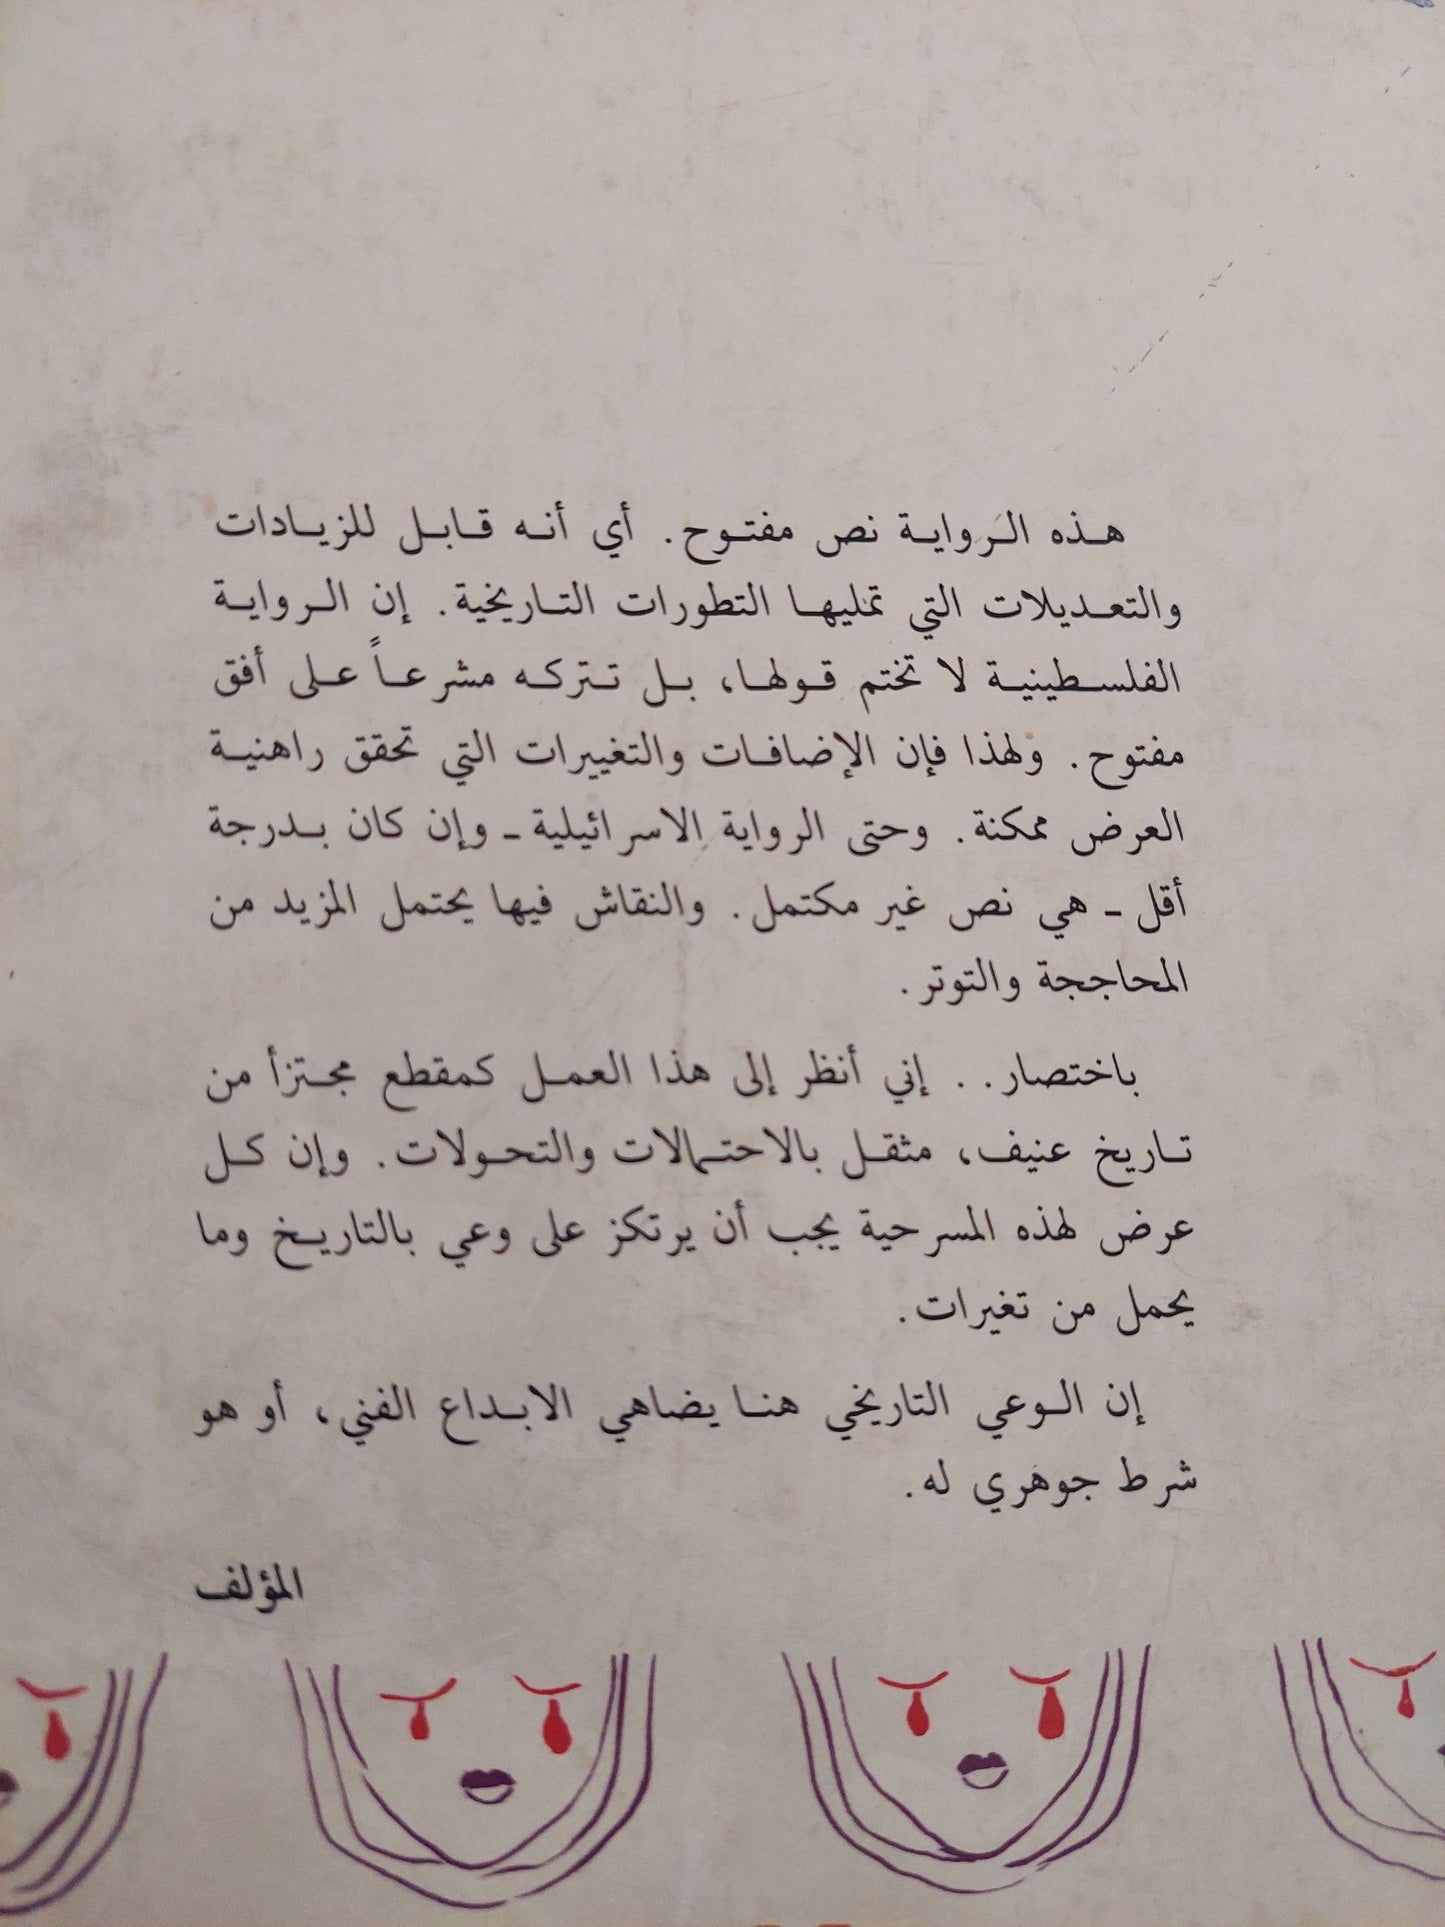 هذه الرواية نص مفتوح. أي أنه قابل للزيادات
والتعديلات التي تمليها التطورات التاريخية. إن الرواية
الفلسطينية لا تختم قولها، بل تتركه مشرعاً على أفق
مفتوح. ولهذا فإن الإضافات والتغييرات التي تحقق راهنية
العرض ممكنة. وحتى الرواية الاسرائيلية ـ وإن كان بدرجة
أقل ـ هي نص غير مكتمل. والنقاش فيها يحتمل المزيد من
المحاججة والتوتر.
باختصار.. إني أنظر إلى هذا العمل كمقطع مجتزأ من
تاريخ عنيف، مثقل بالاحتمالات والتحولات. وإن كل
عرض لهذه المسرحية يجب أن يرتكز على وعي بالتاريخ وما
يحمل من تغيرات.
إن الوعي التاريخي هنا يضاهي الابداع الفني، أو هو
شرط جوهري له.
المؤلف